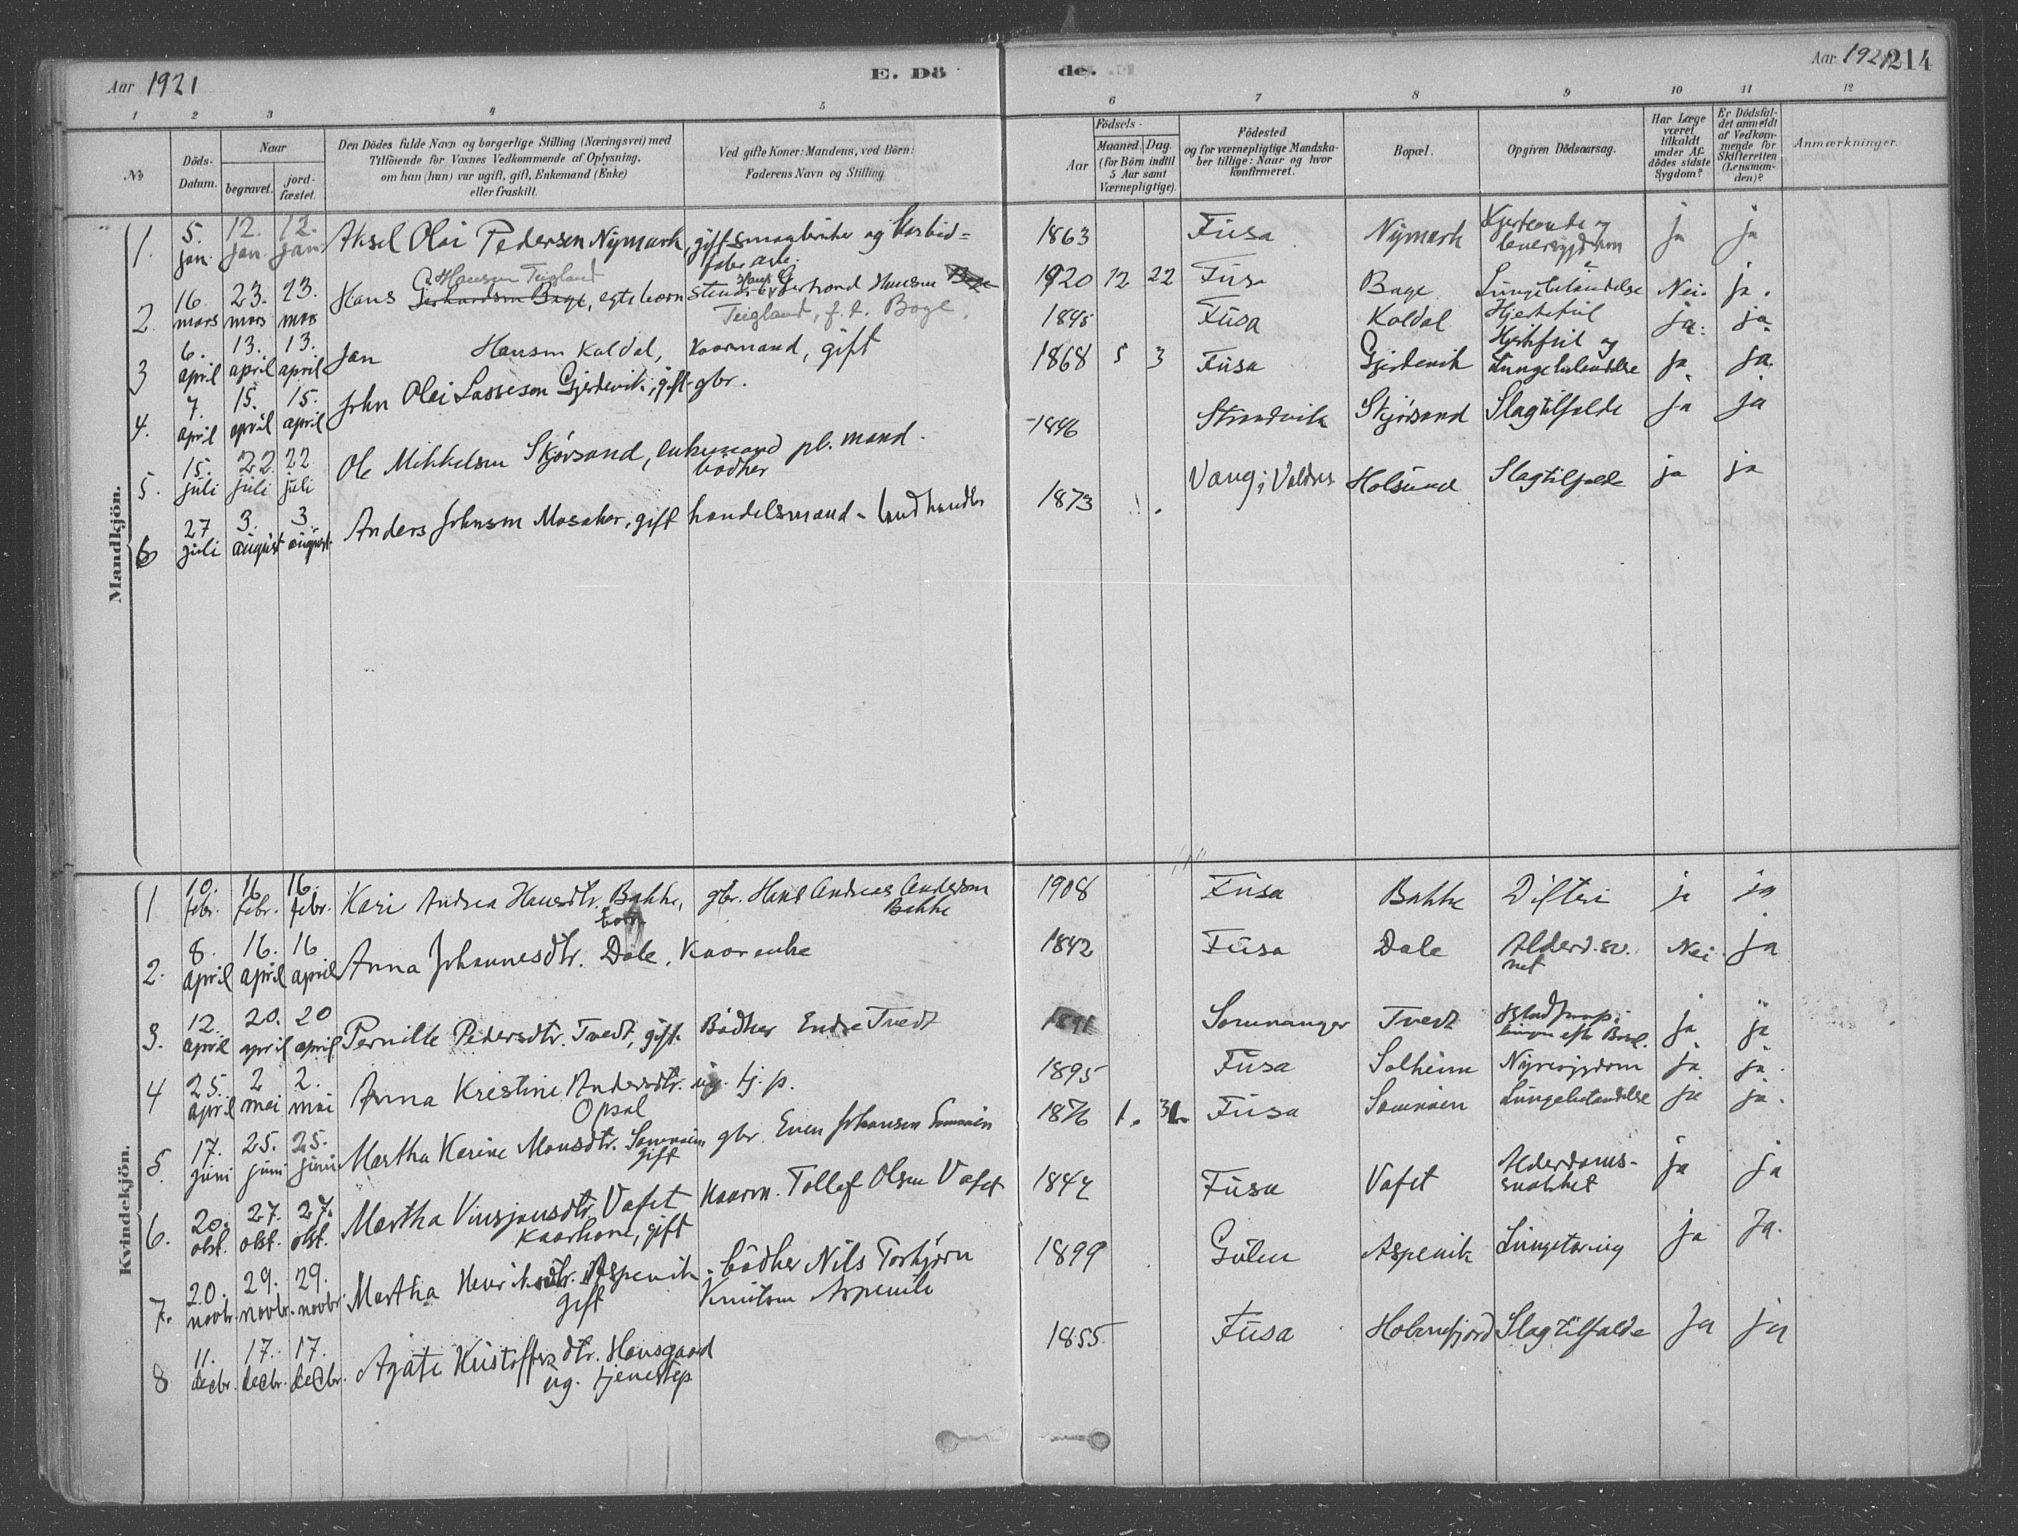 Aar 1921
E. Dö
de.
Aar 1921
214
1 2 3 4 5 6 7 8 9 10 11 12
No
Döds-
Datum.
Naar
begravet.
jord-
fæstet.
Den Dödes fulde Navn og borgerlige Stilling (Næringsvei) med
Tilföiende for Voxnes Vedkommende af Oplysning,
om han (hun) var ugift, gift, Enkemand (Enke)
eller fraskilt.
Ved gifte Koner: Mandens, ved Börn:
Faderens Navn og Stilling.
Födsels-
Aar
Maaned. Dag.
(for Börn indtil
5 Aar samt
Værnepligtige).
Födested
og for værnepligtige Mandska-
ber tillige: Naar og hvor
konfirmeret.
Bopæl.
Opgiven Dödsaarsag.
Har Læge
været
tilkaldt
under Af-
dödes sidste
Sygdom?
Er Dödsfal-
det anmeldt
af Vedkom-
mende for
Skifteretten
(Lensman-
den)?
Anmærkninger.
Mandkjön.
1. 5. jan. 12. jan. 12. jan. Aksel Olai Pedersen Nymark, gift smaabruker og Karbid= 1863 Fusa Nymark Hjerteonde og leversygdom ja ja
2. 16. mars 23. mars 23. mars Hans Gerhardson Bage, egte barn G. Hansen Teigland Gerhard Hansen Bage Teigland, f. t. Bage. 1920 12 22 Fusa Bage Lungebetændelse Nei. ja.
3 6. april 13. april 13. april Jan Hansen Koldal, Kaarmand, gift 1845 Fusa Koldal Hjertefeil ja. ja.
4. 7. april 15. april 15. april John Olai Lassesen Gjerdevik, gift gbr. 1868 5 3 Fusa Gjerdevik Hjertefeil og Lungebetændelse ja ja.
5. 15. juli 22. juli 22 juli Ole Mikkelsen Skjørsand, enkemand pl. mand. bødker 1846 Strandvik Skjørsand Slagtilfælde ja ja
6 27 juli 3. august 3. august. Anders Johnsen Mosaker, gift handelsmand - landhandler 1873 Vang i Valdres Holsund Slagtilfælde ja ja
Kvindekjön.
1 10. febr. 16 febr. 16. febr. Kari Andrea Hansdtr. Bakke, barn gbr. Hans Andreas Anderson Bakke 1908 Fusa Bakke Difteri ja ja
2. 8. april 16. april 16 april Anna Johannesdtr. Dale, Kaarenke 1842 Fusa Dale Alderd. sv. Nei ja
3. 12. april 20. april 20 april Pernille Pedersdtr. Tvedt, gift. Bødker Endre Tvedt Samnanger Tvedt ja ja
4 25. april 2 mei 2. mai Anna Kristine Andersdtr. Opsal ug. tj. p. 1895 Fusa Solheim Nyresygdom ja ja.
5. 17. juni 25. juni 25. juni Martha Karine Monsdtr. Samnøen gift gbr. Even Johansen Samnøen 1876 1. Fusa Samnøen Lungebetændelse ja ja.
6. 20. okt. 27. okt. 27. okt. Martha Vinsjansdtr. Vafet Kaarkone, gift Kaarm. Tollef Olsen Vafet 1847 Fusa Vafet Alderdoms- svakhet ja ja
7. 20. novbr. 29. novbr. 29. novbr. Martha Henriksdtr. Aspevik gift bødker Nils Torbjørn Knutson Aspevik 1899 Gulen Aspevik Lungetæring ja Ja.
8 11. decbr. 17. decbr. 17. decbr. Agate Kristoffersdtr. Hansgaard ug. tjenestep 1855 Fusa Holmefjord Slagtilfælde Ja ja